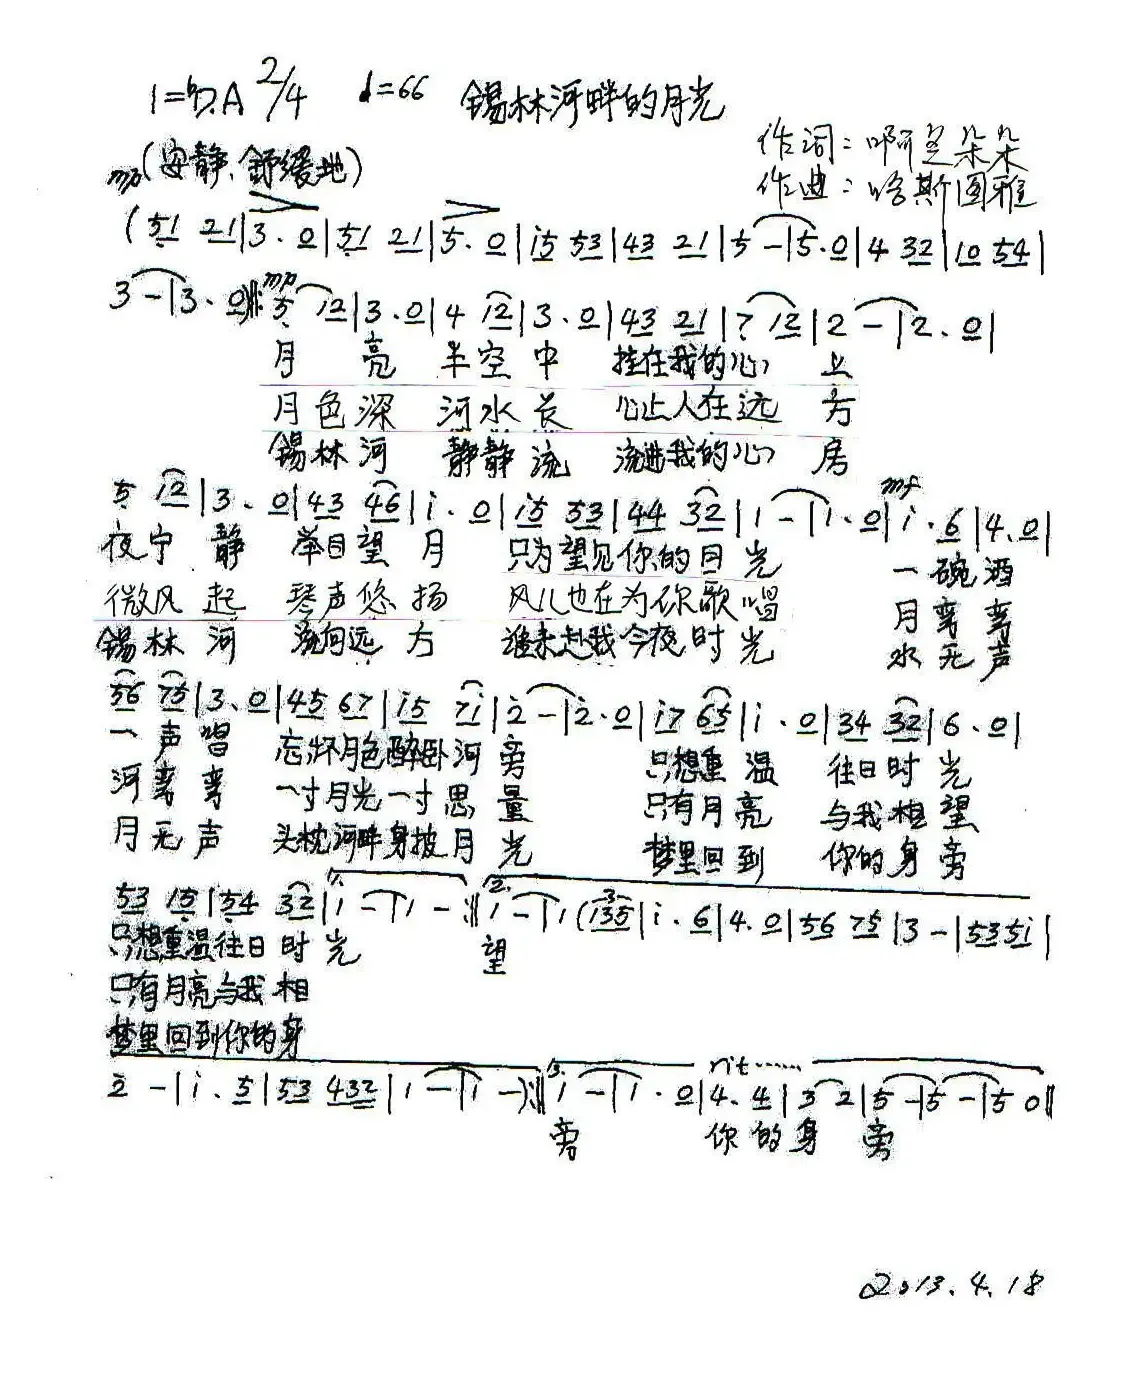 1=ᵇD.A 2/4 ♩=66 锡林河畔的月光
作词：啊呈朵朵
mp(安静、舒缓地)
作曲：哈斯图雅
(51 21|3·0|51 21|5·0|i5 53|43 21|5-|5·0|4 32|10 54|
3-|3·0)‖: mp 5 12|3·0|4 12|3·0|43 21|7 12|2-|2·0|
月亮 半空中 挂在我的心上
月色深 河水长 心上人在远方
锡林河 静静流 流进我的心房
5 12|3·0|43 46|i·0|i5 53|44 32|1-|1·0| mf i·6|4·0|
夜宁静 举目望月 只为望见你的目光 一碗酒
微风起 琴声悠扬 风儿也在为你歌唱 月弯弯
锡林河 流向远方 谁来赴我今夜时光 水无声
56 75|3·0|45 67|i5 7i|2-|2·0|i7 65|i·0|34 32|6·0|
一声唱 忘怀月色醉卧河旁 只想重温 往日时光
河弯弯 一寸月光一寸思量 只有月亮 与我相望
月无声 头枕河畔身披月光 梦里回到 你的身旁
53 15|54 32|1. 1-|1-:‖2. 1-|1(135|i·6|4·0|56 75|3-|535i|
只想重温往日时光 望
只有月亮与我相
梦里回到你的身
2-|i·5|53 432|1-|1-):‖3. 1-|1·0| rit…… 4·4|3 2|5-|5-|5 0‖
旁 你的身旁
2013.4.18